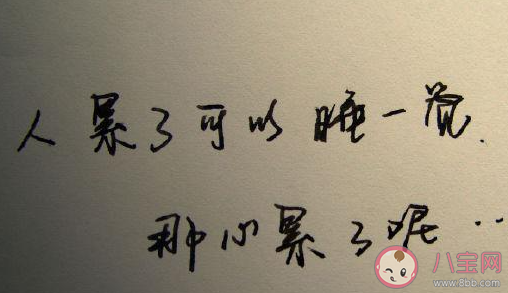 人累了可以睡一觉.
那心累了呢..
八宝网
www.8bb.com